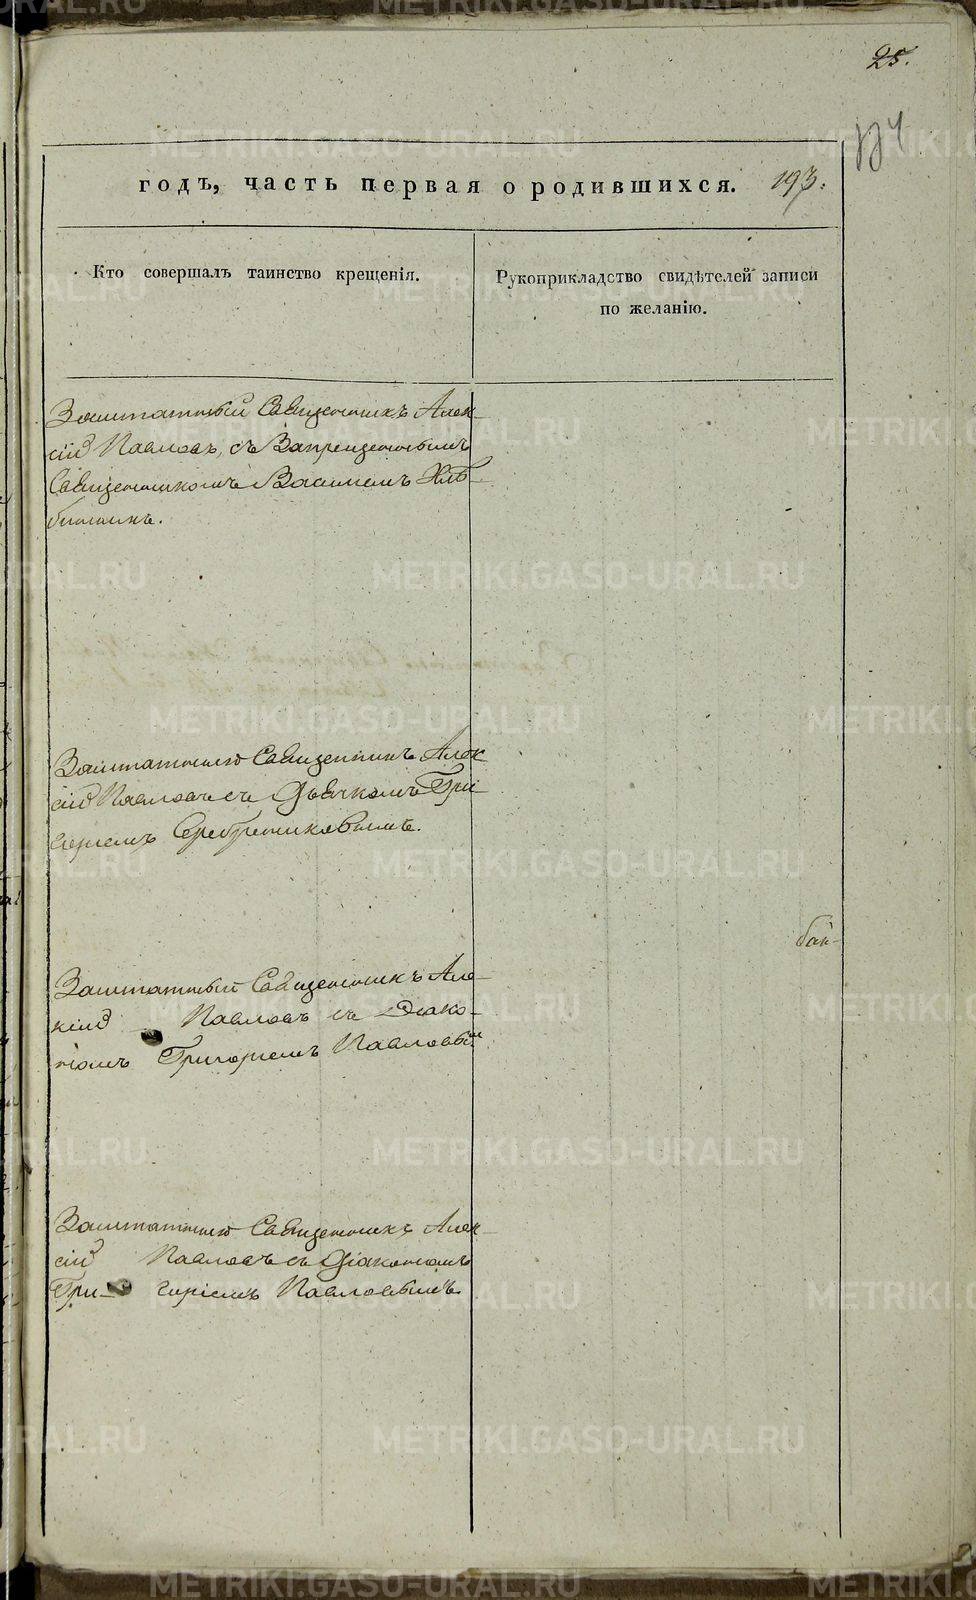 25.
годъ, часть первая о родившихся. 193.
Кто совершалъ таинство крещенія.
Рукоприкладство свидѣтелей записи
по желанію.
Заштатный Священникъ Алек-
сій Павловъ, съ Запрещеннымъ
Священникомъ Василіемъ Хлѣ-
бининъ.
Заштатный Священникъ Алек
сій Павловъ съ Дьячкомъ Гри-
горіемъ Серебренниковымъ.
Заштатный Священникъ Але-
ксій Павловъ съ Діако-
номъ Григоріемъ Павловымъ
Заштатный Священникъ Алек-
сій Павловъ съ Діакономъ
Гри- горіемъ Павловымъ.
METRIKI.GASO-URAL.RU